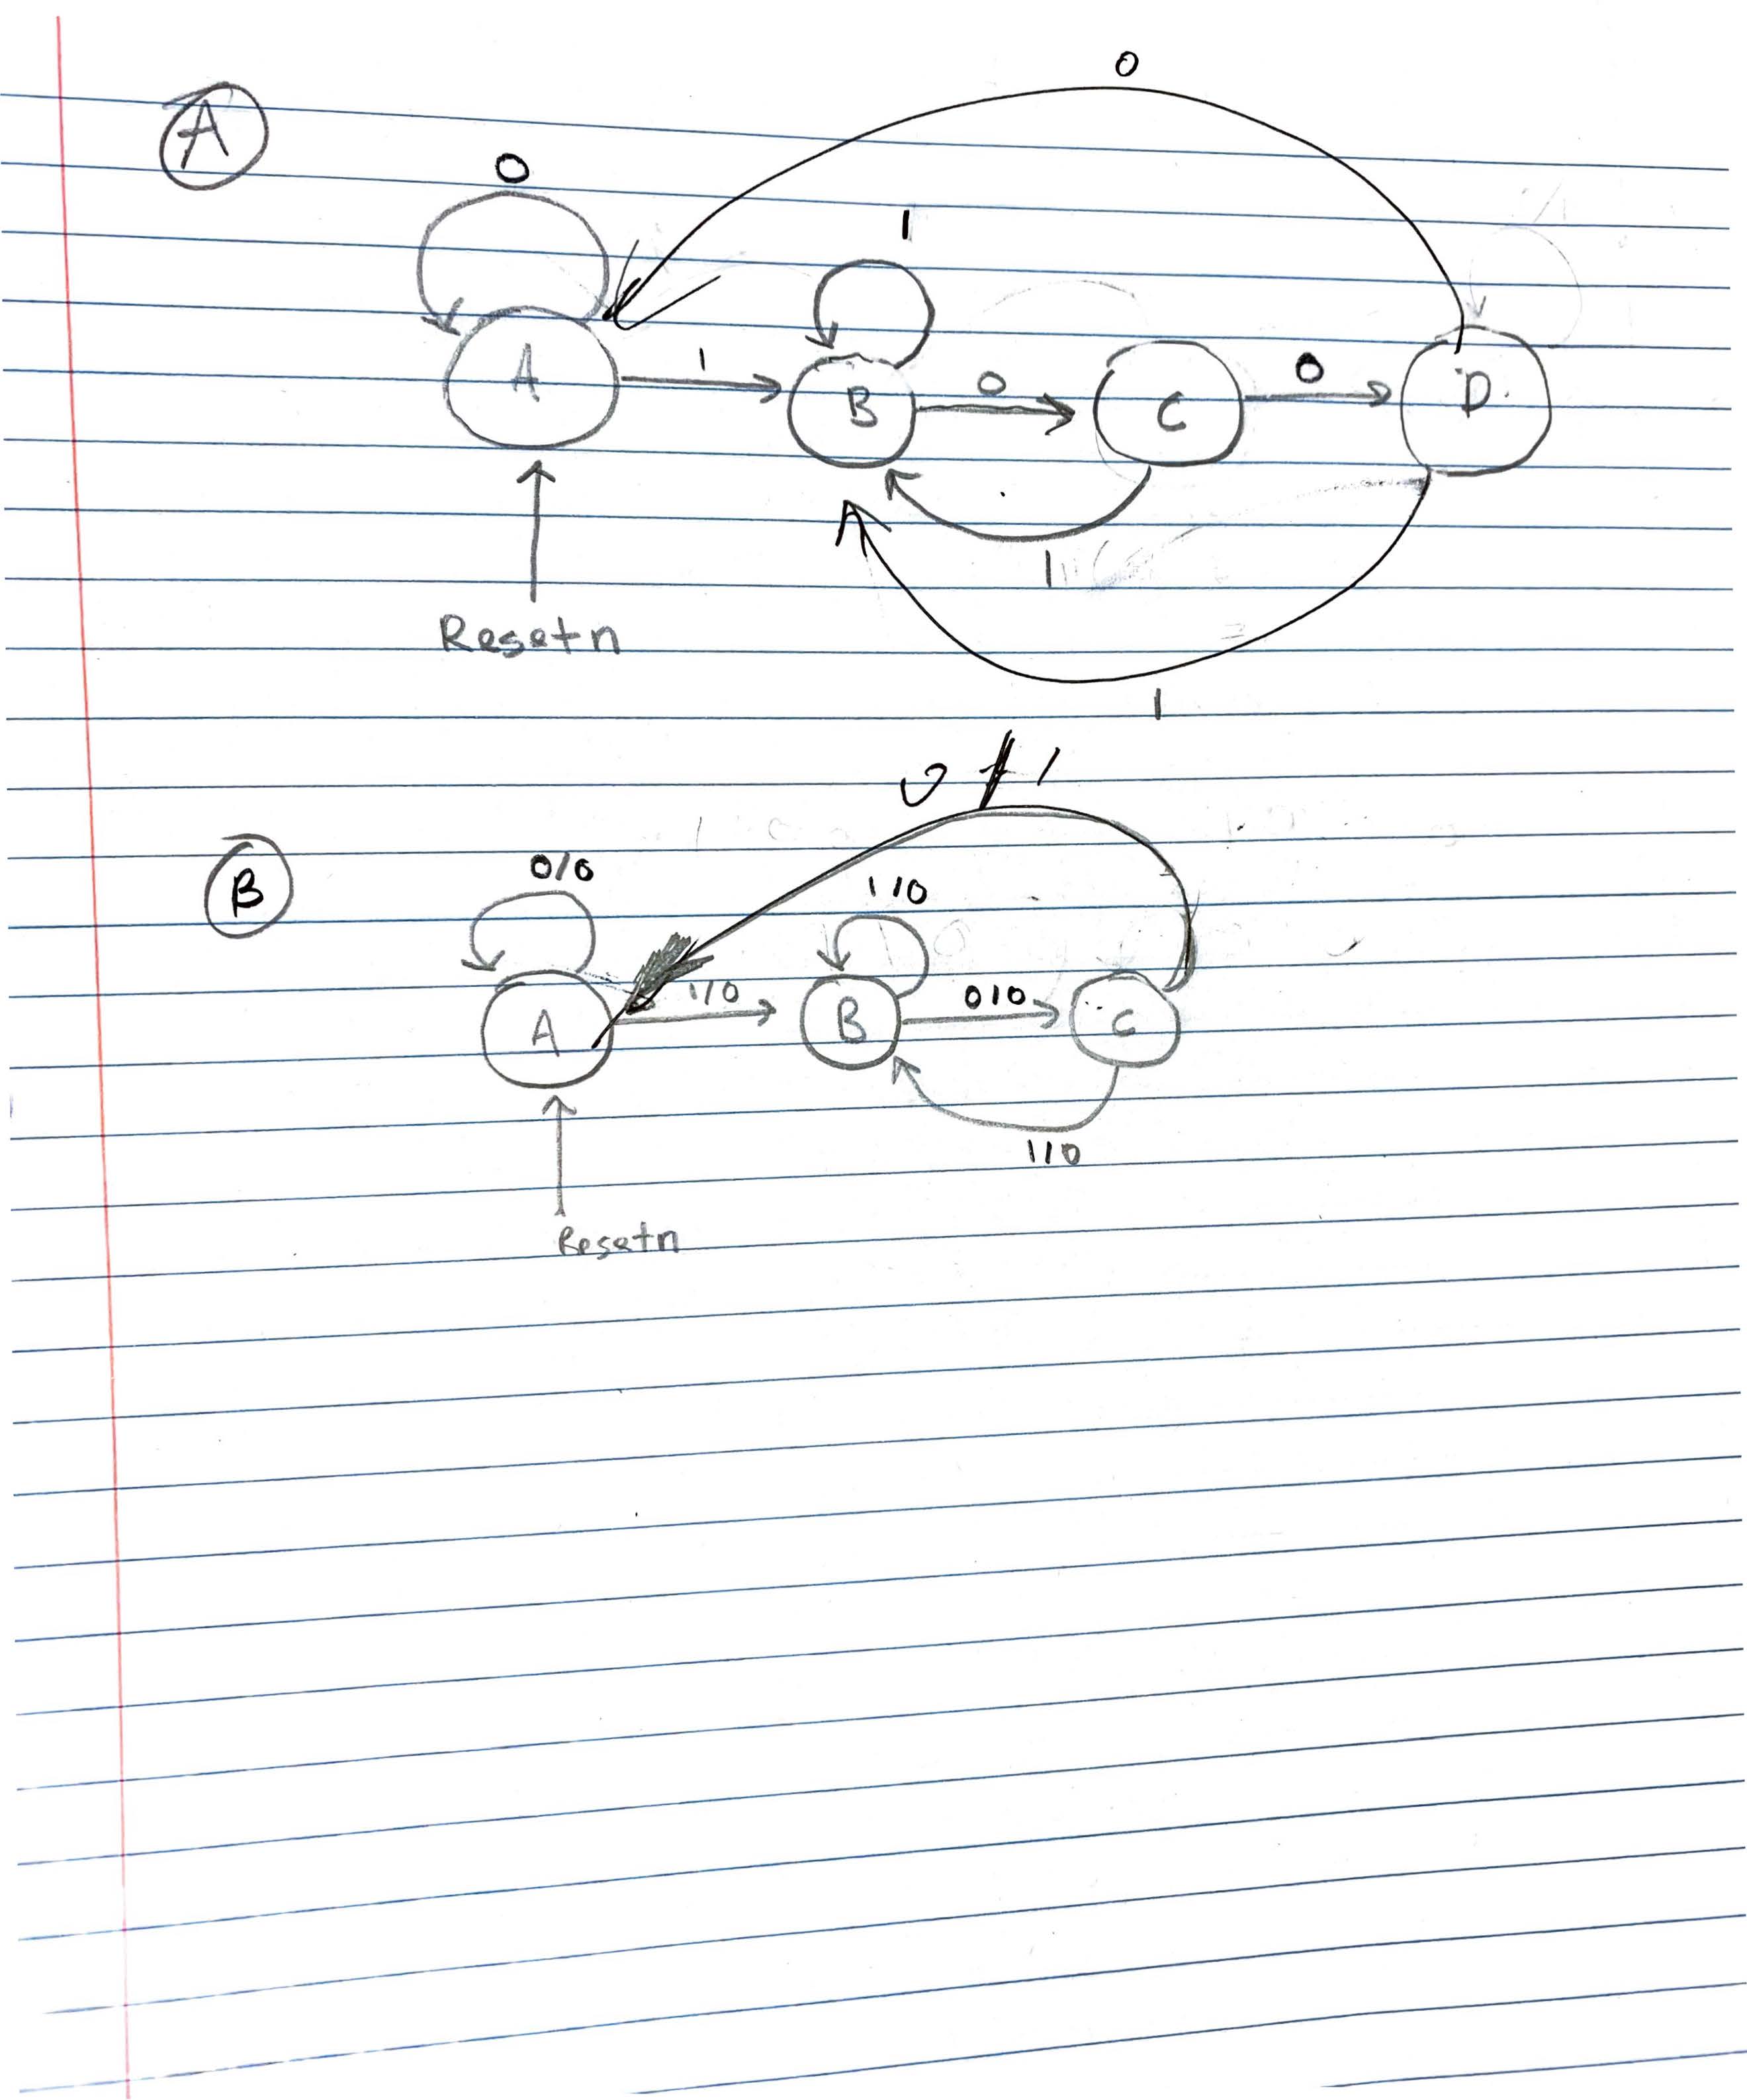 A
0
0
1
A
1
B
0
C
0
D
1
Resetn
1
B
0/0
1/0
A
1/0
B
0/0
C
1/0
Resetn